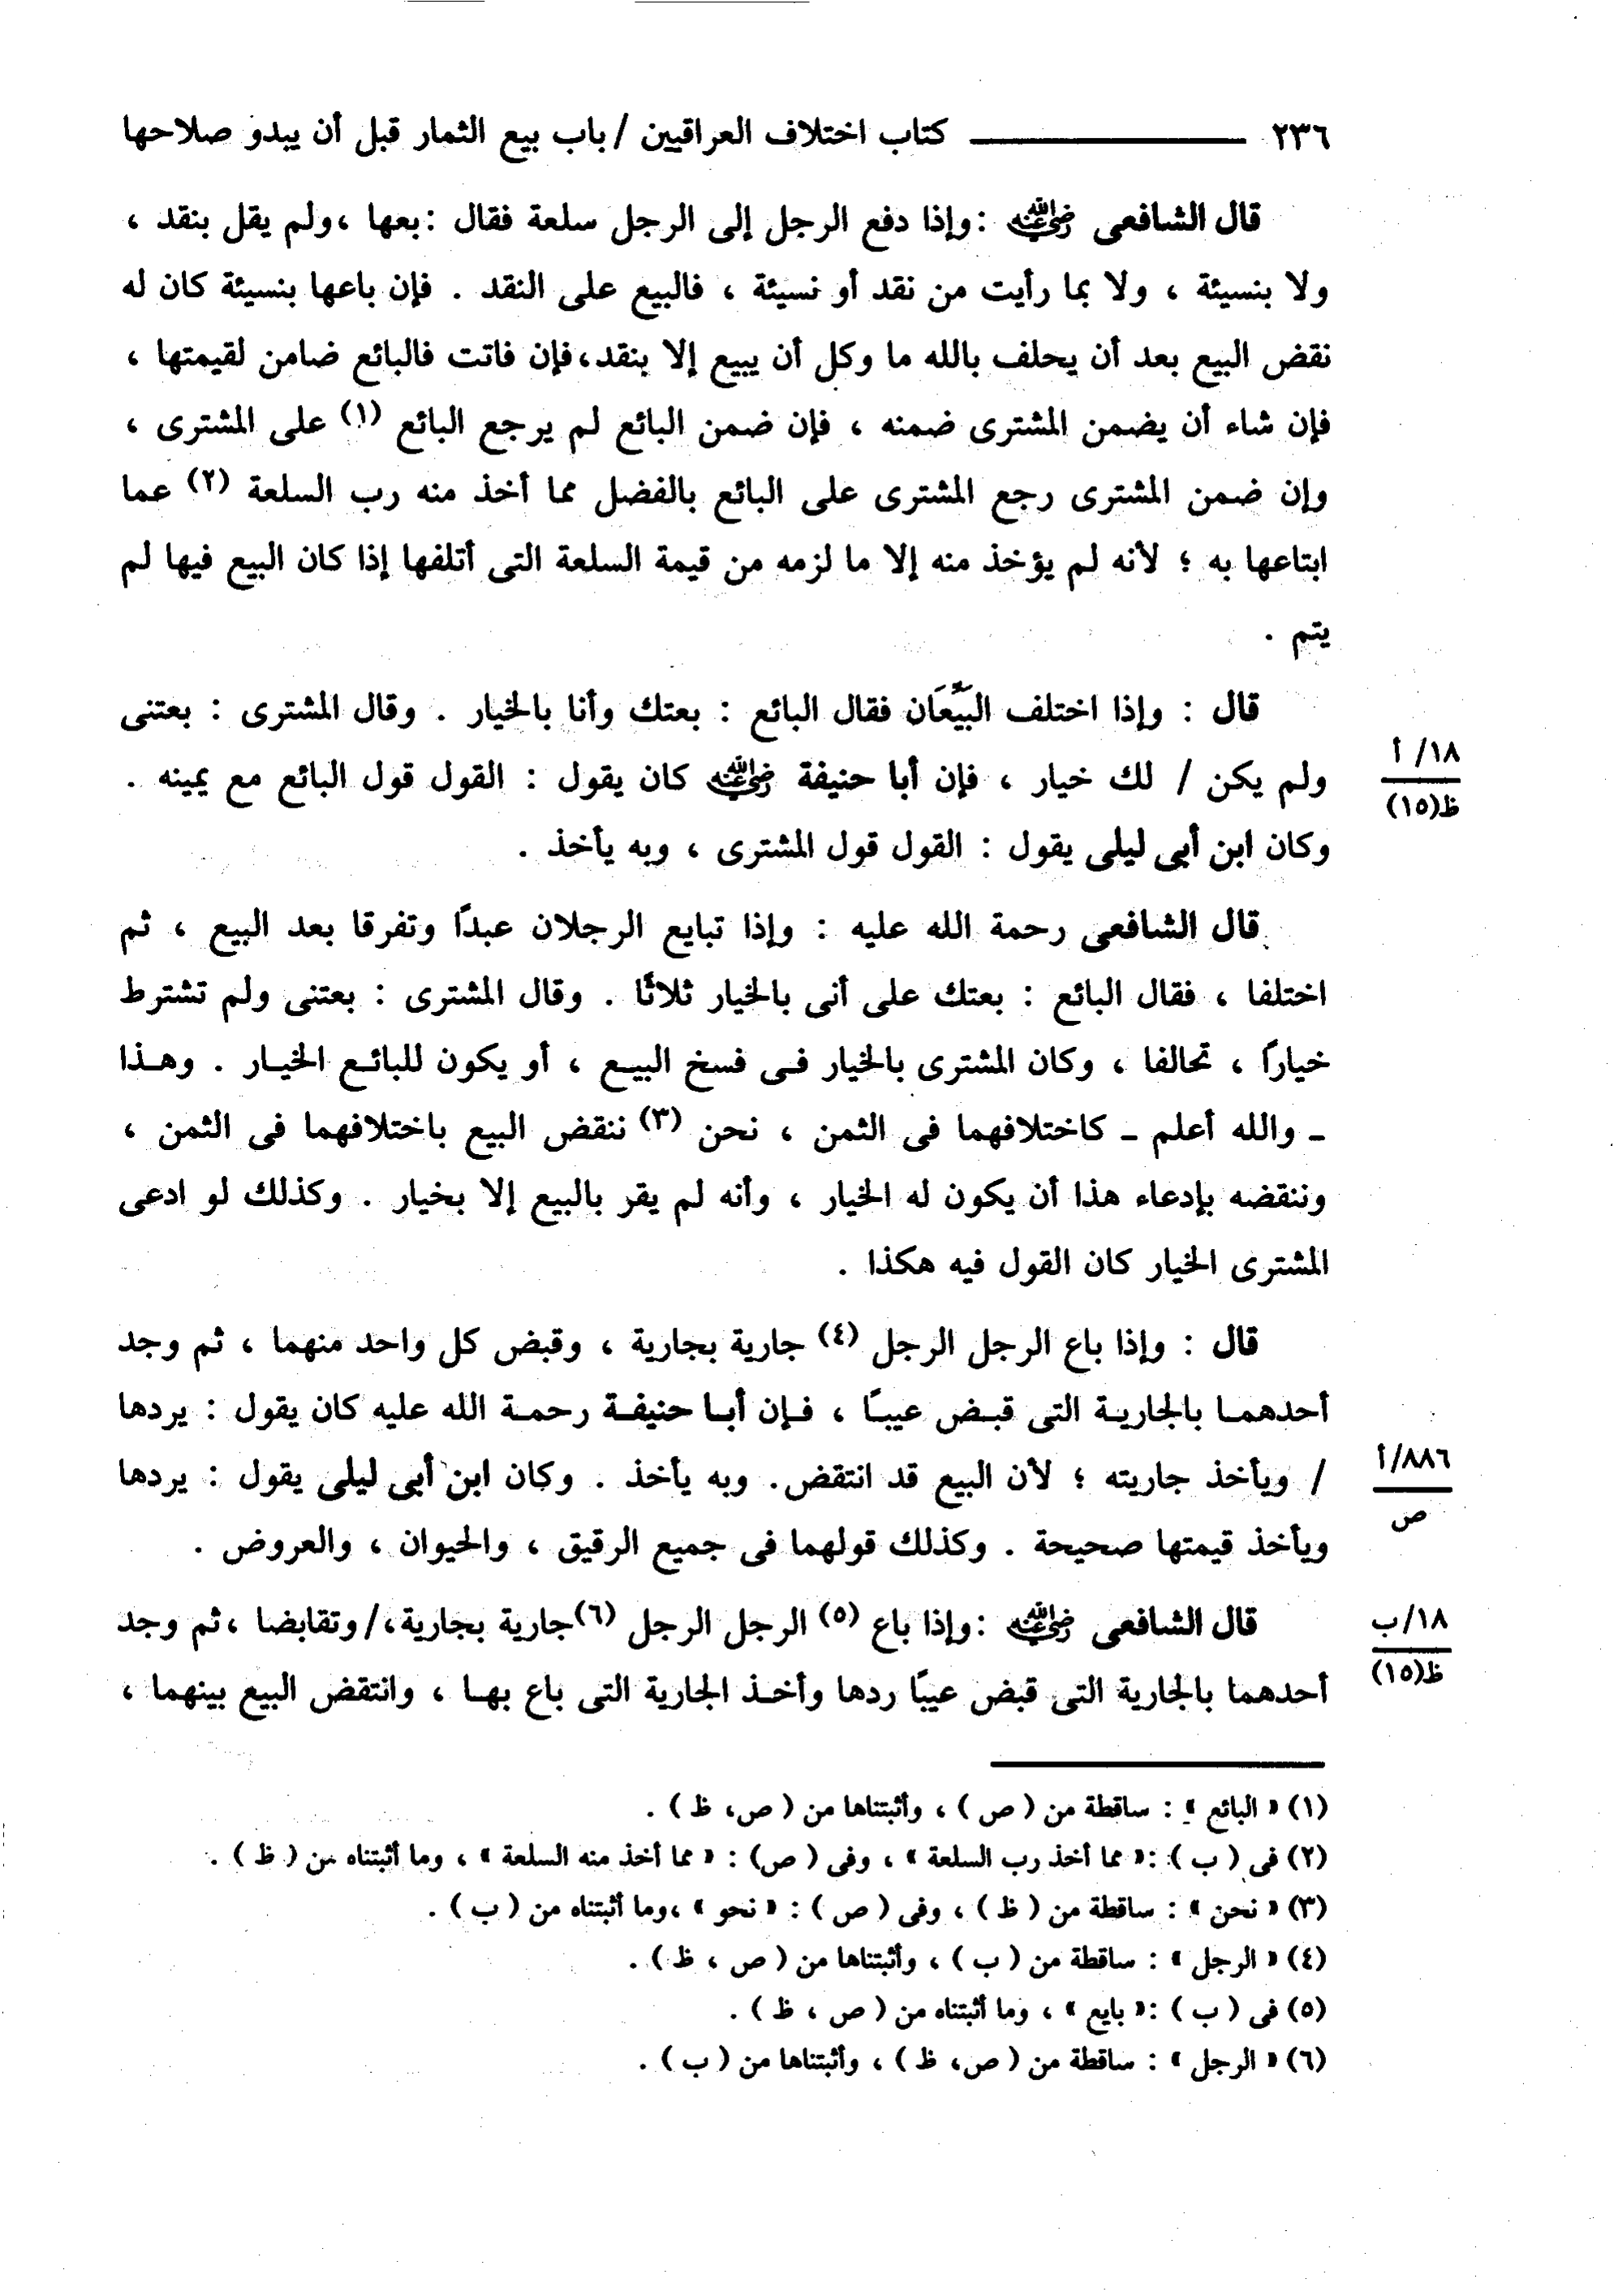 ٢٣٦ ـــــــــــ كتاب اختلاف العراقيين / باب بيع الثمار قبل أن يبدو صلاحها
قال الشافعى رضي الله عنه : وإذا دفع الرجل إلى الرجل سلعة فقال : بعها ، ولم يقل بنقد ،
ولا بنسيئة ، ولا بما رأيت من نقد أو نسيئة ، فالبيع على النقد . فإن باعها بنسيئة كان له
نقض البيع بعد أن يحلف بالله ما وكل أن يبيع إلا بنقد، فإن فاتت فالبائع ضامن لقيمتها ،
فإن شاء أن يضمن المشترى ضمنه ، فإن ضمن البائع لم يرجع البائع (١) على المشترى ،
وإن ضمن المشترى رجع المشترى على البائع بالفضل مما أخذ منه رب السلعة (٢) عما
ابتاعها به ؛ لأنه لم يؤخذ منه إلا ما لزمه من قيمة السلعة التى أتلفها إذا كان البيع فيها لم
يتم .
قال : وإذا اختلف البَيِّعَان فقال البائع : بعتك وأنا بالخيار . وقال المشترى : بعتنى
ولم يكن / لك خيار ، فإن أبا حنيفة رضي الله عنه كان يقول : القول قول البائع مع يمينه .
١٨/ أ
ظ(١٥)
وكان ابن أبى ليلى يقول : القول قول المشترى ، وبه يأخذ .
قال الشافعى رحمة الله عليه : وإذا تبايع الرجلان عبدًا وتفرقا بعد البيع ، ثم
اختلفا ، فقال البائع : بعتك على أنى بالخيار ثلاثًا . وقال المشترى : بعتنى ولم تشترط
خيارًا ، تحالفا ، وكان المشترى بالخيار فى فسخ البيع ، أو يكون للبائع الخيار . وهذا
ـ والله أعلم ـ كاختلافهما فى الثمن ، نحن (٣) ننقض البيع باختلافهما فى الثمن ،
وننقضه بإدعاء هذا أن يكون له الخيار ، وأنه لم يقر بالبيع إلا بخيار . وكذلك لو ادعى
المشترى الخيار كان القول فيه هكذا .
قال : وإذا باع الرجل الرجل (٤) جارية بجارية ، وقبض كل واحد منهما ، ثم وجد
أحدهما بالجارية التى قبض عيبًا ، فإن أبا حنيفة رحمة الله عليه كان يقول : يردها
/ ويأخذ جاريته ؛ لأن البيع قد انتقض. وبه يأخذ . وكان ابن أبى ليلى يقول : يردها
٨٨٦/أ
ص
ويأخذ قيمتها صحيحة . وكذلك قولهما فى جميع الرقيق ، والحيوان ، والعروض .
قال الشافعى رضي الله عنه : وإذا باع (٥) الرجل الرجل (٦) جارية بجارية، / وتقابضا ، ثم وجد
١٨/ب
ظ(١٥)
أحدهما بالجارية التى قبض عيبًا ردها وأخذ الجارية التى باع بها ، وانتقض البيع بينهما ،
(١) « البائع » : ساقطة من ( ص ) ، وأثبتناها من ( ص، ظ ) .
(٢) فى ( ب ) : « مما أخذ رب السلعة » ، وفى ( ص) : « مما أخذ منه السلعة » ، وما أثبتناه من ( ظ ) .
(٣) « نحن » : ساقطة من ( ظ ) ، وفى ( ص ) : « نحو » ، وما أثبتناه من ( ب ) .
(٤) « الرجل » : ساقطة من ( ب ) ، وأثبتناها من ( ص ، ظ ) .
(٥) فى ( ب ) : « بايع » ، وما أثبتناه من ( ص ، ظ ) .
(٦) « الرجل » : ساقطة من ( ص، ظ ) ، وأثبتناها من ( ب ) .